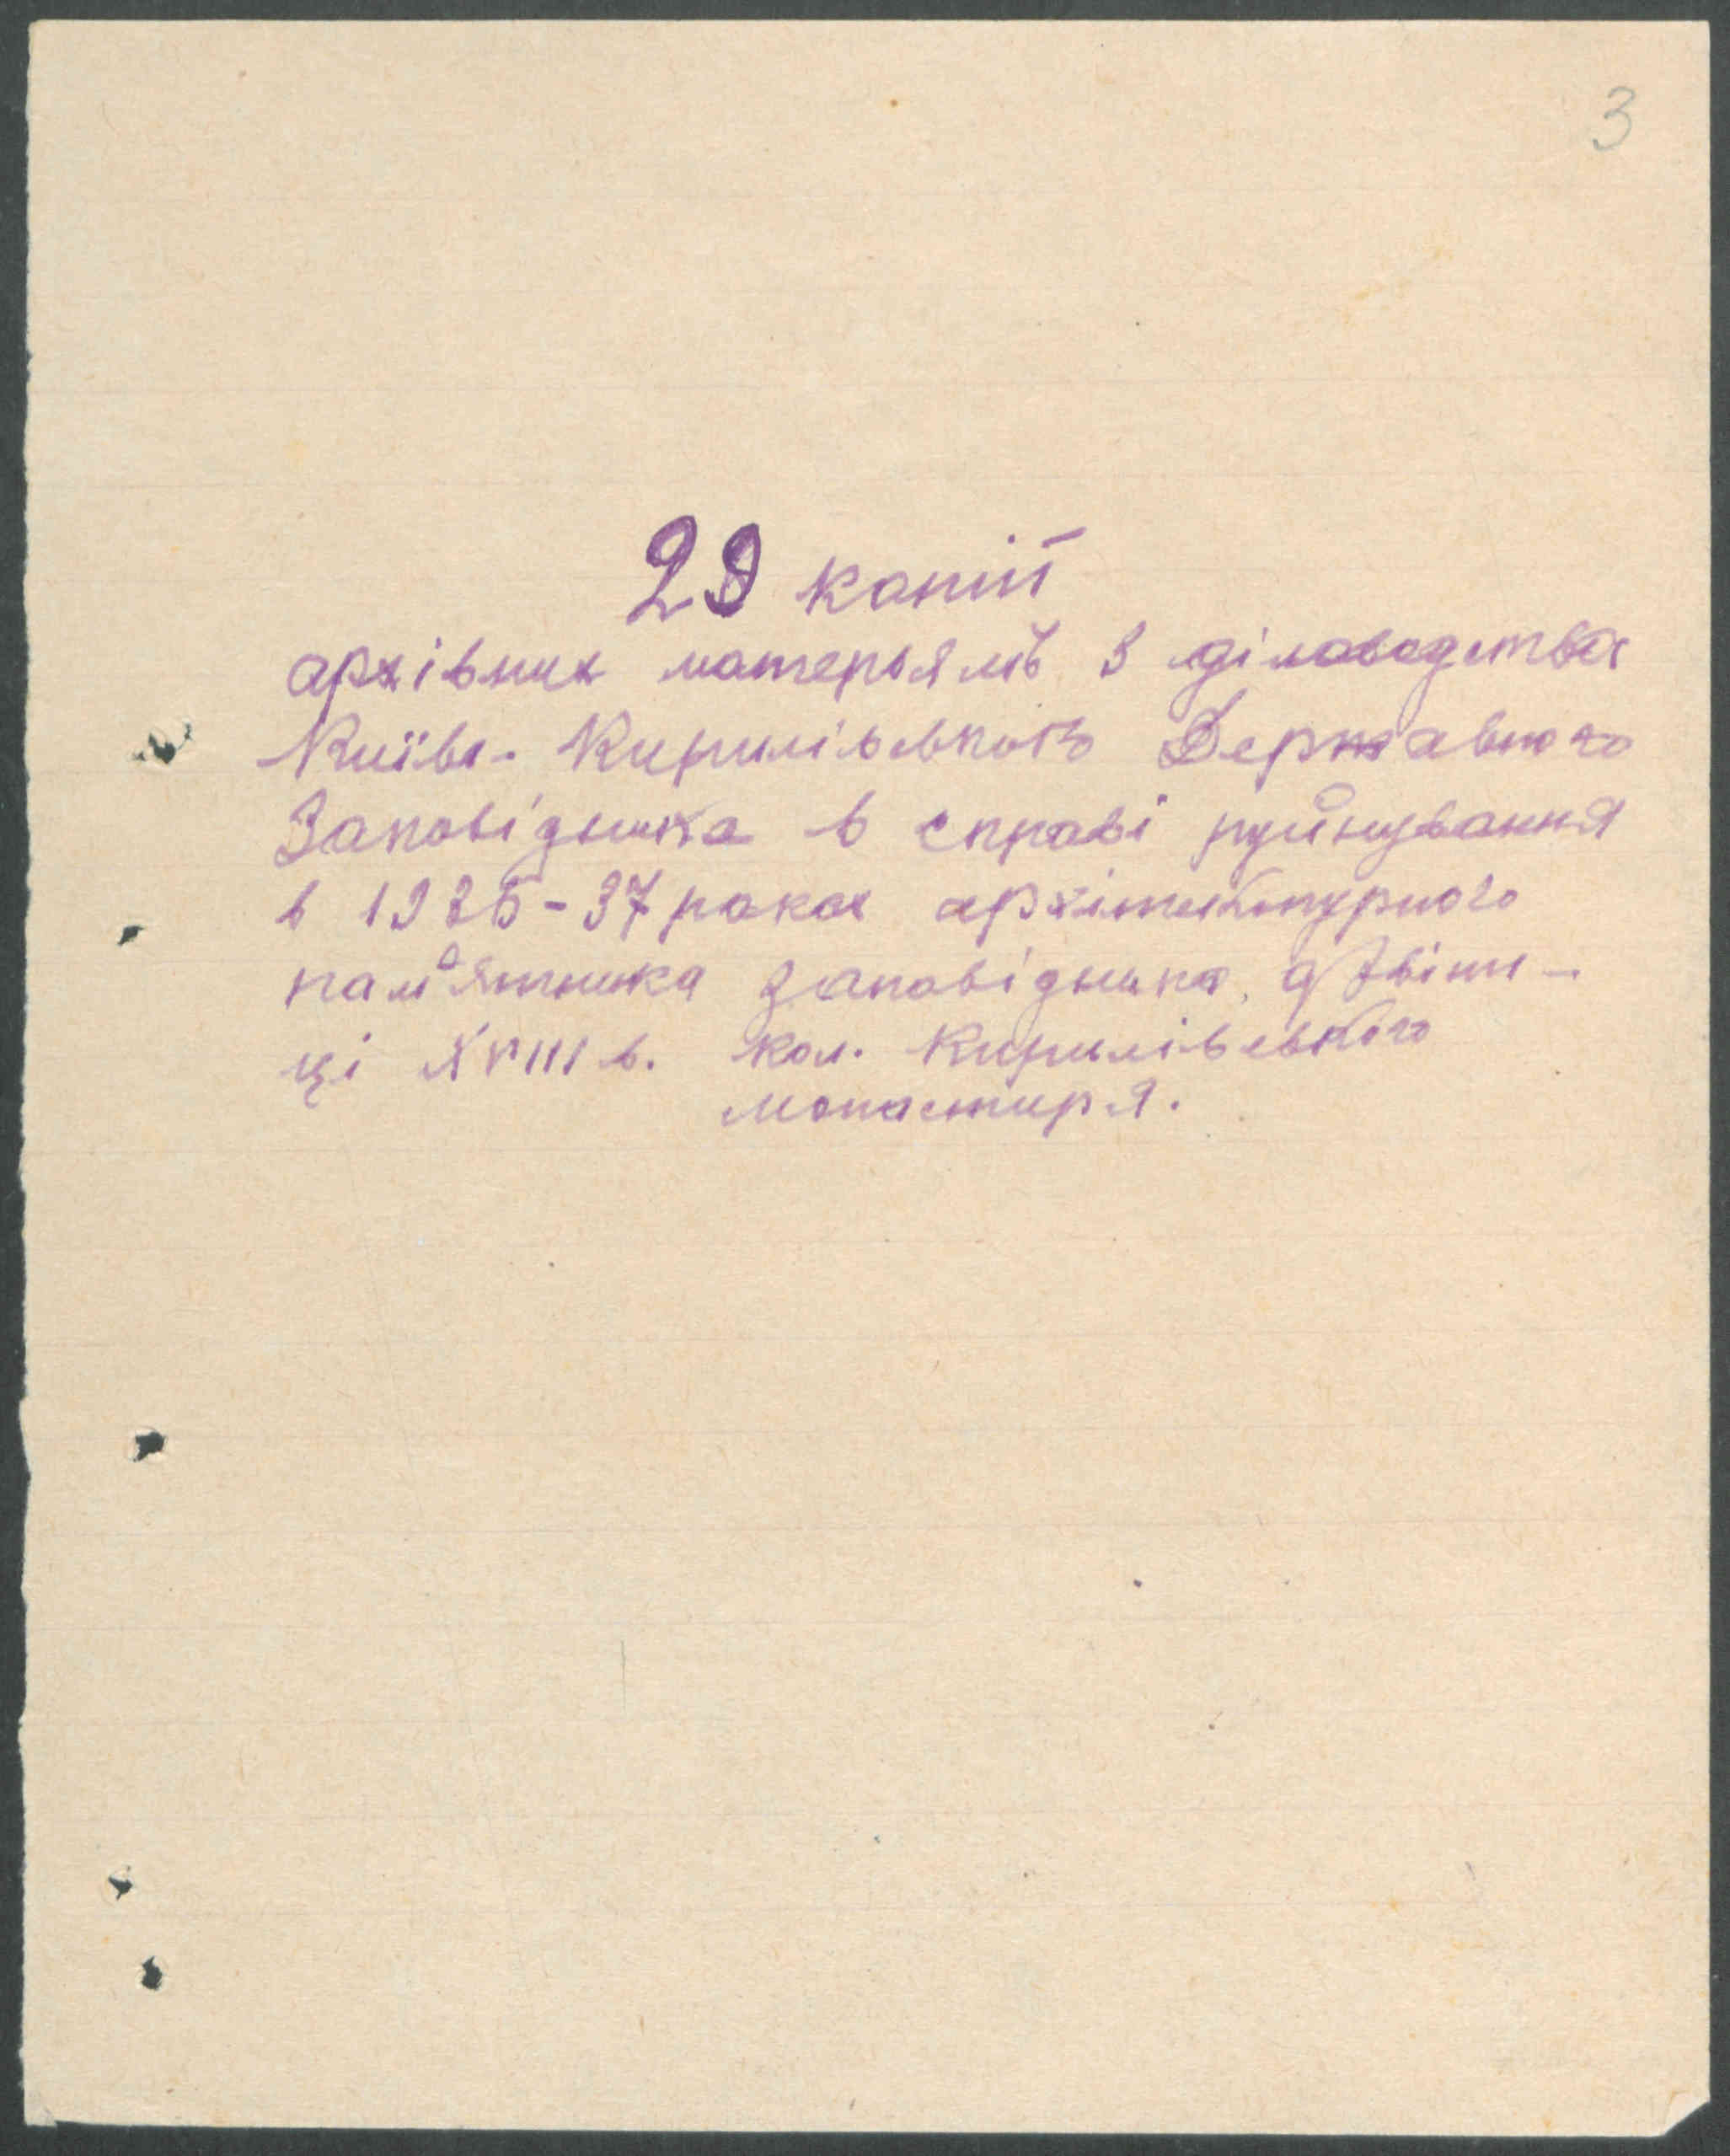 3
29 копій
архівних матерьялів з діловодства
Київс. Кирилівського Державного
Заповідника в справі руйнування
в 1936-37 роках архітектурного
пам'ятника Заповідника, дзвіни-
ці XVIII в. кол. Кирилівського
монастиря.